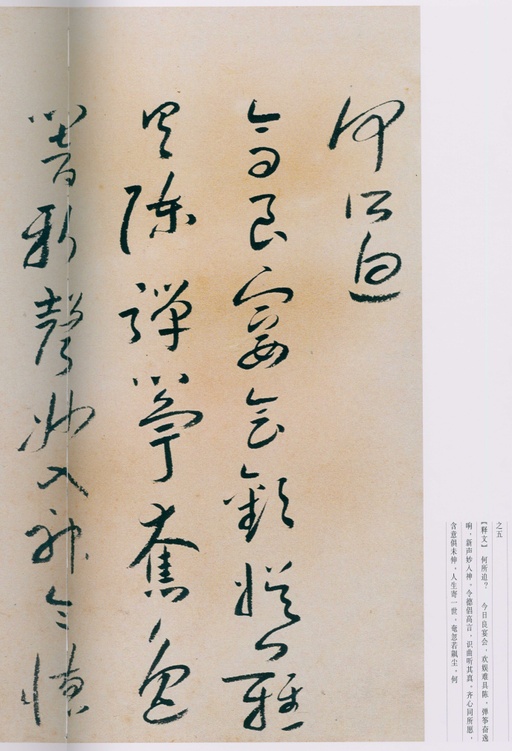 何所迫
今日良宴會歡娛難
具陳彈箏奮逸
響新聲妙入神令德
之五
【释文】 何所迫？ 今日良宴会，欢娱难具陈。弹筝奋逸
响，新声妙入神。令德倡高言，识曲听其真。齐心同所愿，
含意俱未伸。人生寄一世，奄忽若飙尘。何